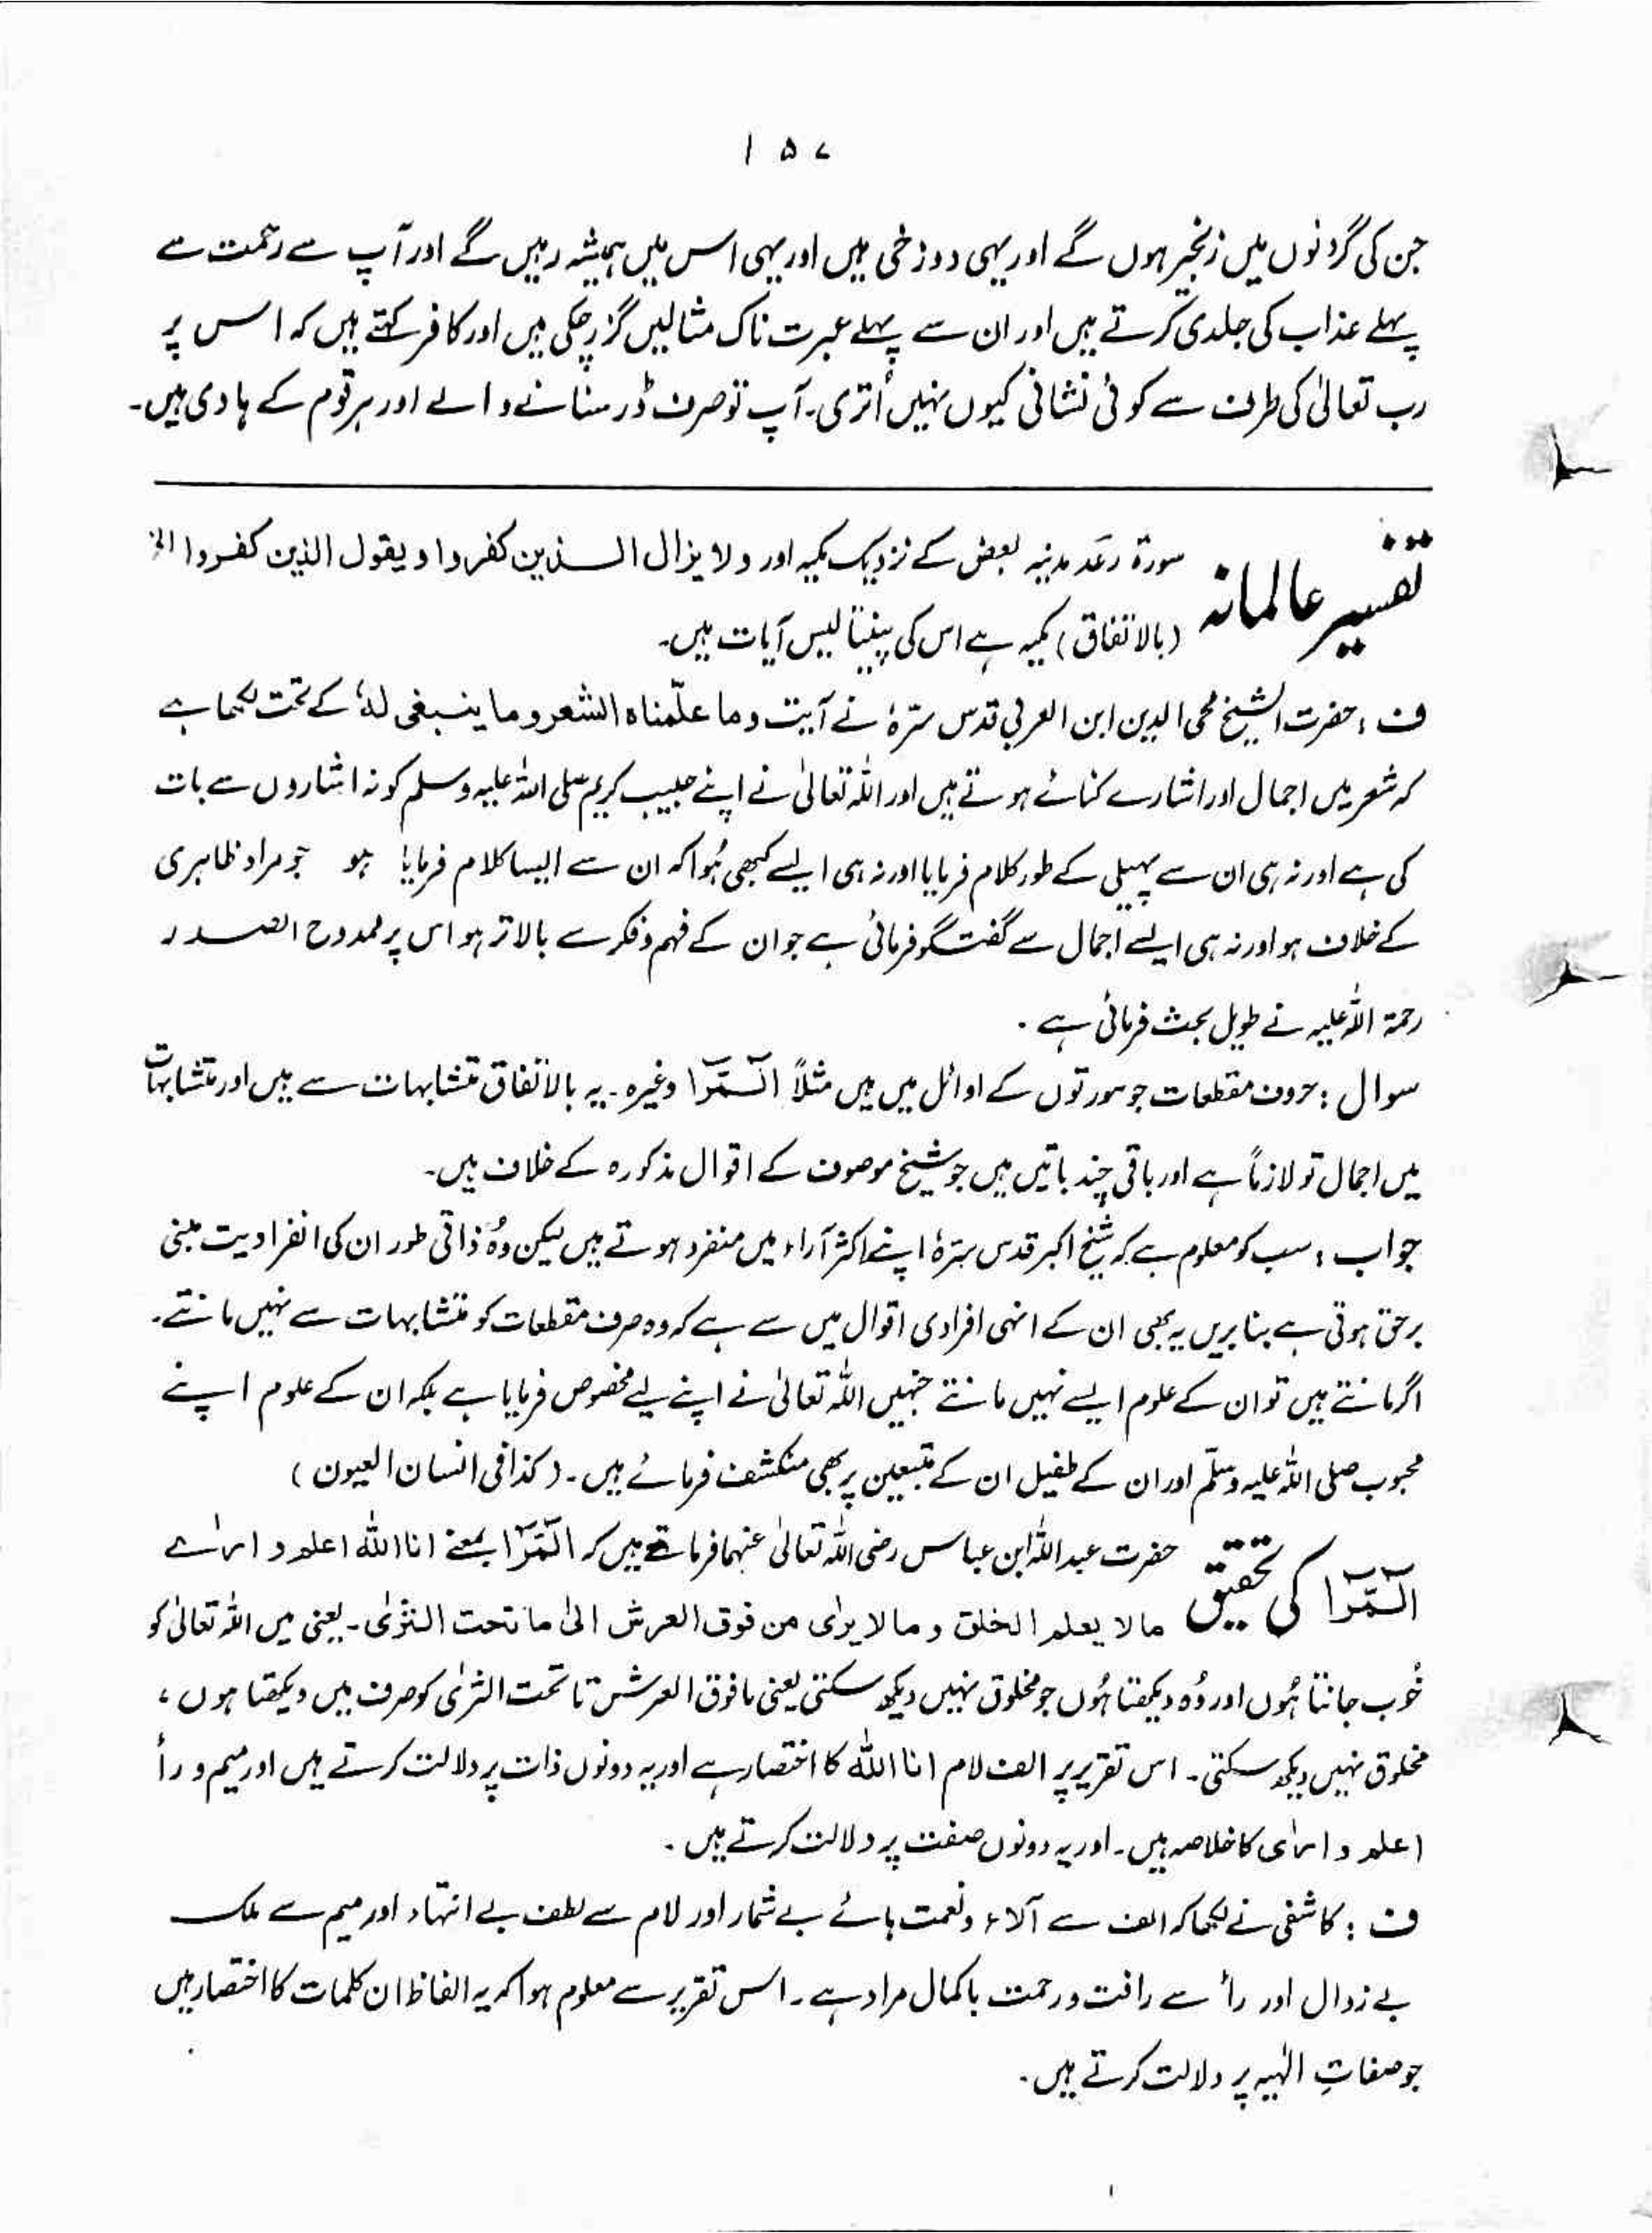 ۱۵۷
جن کی گردنوں میں زنجیر ہوں گے اور یہی دوزخی ہیں اور یہی اس میں ہمیشہ رہیں گے اور آپ سے رحمت سے
پہلے عذاب کی جلدی کرتے ہیں اور ان سے پہلے عبرت ناک مثالیں گزر چکی ہیں اور کافر کہتے ہیں کہ اس پر
رب تعالیٰ کی طرف سے کوئی نشانی کیوں نہیں اُتری۔ آپ تو صرف ڈر سنانے والے اور ہر قوم کے ہادی ہیں۔
تفسیر عالمانہ سورۃ رعد مدنیہ بعض کے نزدیک مکیہ اور ولا یزال الذین کفروا و یقول الذین کفروا الخ
(بالاتفاق) مکیہ ہے اس کی پینتالیس آیات ہیں۔
ف : حضرت الشیخ محی الدین ابن العربی قدس سرّہٗ نے آیت وما علّمناہ الشعر وما ینبغی لہٗ کے تحت لکھا ہے
کہ شعر میں اجمال اور اشارے کنائے ہوتے ہیں اور اللہ تعالیٰ نے اپنے حبیب کریم صلی اللہ علیہ وسلم کو نہ اشاروں سے بات
کی ہے اور نہ ہی ان سے پہیلی کے طور کلام فرمایا اور نہ ہی ایسے کبھی ہُوا کہ ان سے ایسا کلام فرمایا ہو جو مراد ظاہری
کے خلاف ہو اور نہ ہی ایسے اجمال سے گفتگو فرمائی ہے جو ان کے فہم و فکر سے بالاتر ہو اس پر ممدوح الصدر
رحمۃ اللہ علیہ نے طویل بحث فرمائی ہے۔
سوال : حروف مقطعات جو سورتوں کے اوائل میں ہیں مثلاً الٓـمّٓرٰ وغیرہ۔ یہ بالاتفاق متشابہات سے ہیں اور متشابہات
میں اجمال تو لازماً ہے اور باقی چند باتیں ہیں جو شیخ موصوف کے اقوال مذکورہ کے خلاف ہیں۔
جواب : سب کو معلوم ہے کہ شیخ اکبر قدس سرّہٗ اپنے اکثر آراء میں منفرد ہوتے ہیں لیکن وُہ ذاتی طور ان کی انفرادیت مبنی
برحق ہوتی ہے بنا بریں یہ بھی ان کے انہی افرادی اقوال میں سے ہے کہ وہ حرف مقطعات کو متشابہات سے نہیں مانتے۔
اگر مانتے ہیں تو ان کے علوم ایسے نہیں مانتے جنہیں اللہ تعالیٰ نے اپنے لیے مخصوص فرمایا ہے بلکہ ان کے علوم اپنے
محبوب صلی اللہ علیہ وسلّم اور ان کے طفیل ان کے متبعین پر بھی منکشف فرمائے ہیں۔ (کذا فی انسان العیون)
الٓـمّٓرٰ کی تحقیق حضرت عبداللہ ابن عباس رضی اللہ تعالیٰ عنہما فرماتے ہیں کہ الٓمّٓرٰ بمعنے انا اللہ اعلم و اریٰ
مالا یعلم الخلق و مالا یرٰی من فوق العرش الیٰ ما تحت الثرٰی۔ یعنی میں اللہ تعالیٰ کو
خُوب جانتا ہُوں اور وُہ دیکھتا ہُوں جو مخلوق نہیں دیکھ سکتی یعنی مافوق العرش تا تحت الثرٰی کو صرف میں دیکھتا ہوں،
مخلوق نہیں دیکھ سکتی۔ اس تقریر پر الف لام انا اللہ کا اختصار ہے اور یہ دونوں ذات پر دلالت کرتے ہیں اور میم و رأ
اعلم و ارٰی کا خلاصہ ہیں۔ اور یہ دونوں صفت پر دلالت کرتے ہیں۔
ف : کاشفی نے لکھا کہ الف سے آلاء و نعمت ہائے بے شمار اور لام سے لطف بے انتہاء اور میم سے ملک
بے زوال اور رأ سے رافت و رحمت باکمال مراد ہے۔ اس تقریر سے معلوم ہوا کہ یہ الفاظ ان کلمات کا اختصار ہیں
جو صفاتِ الٰہیہ پر دلالت کرتے ہیں۔